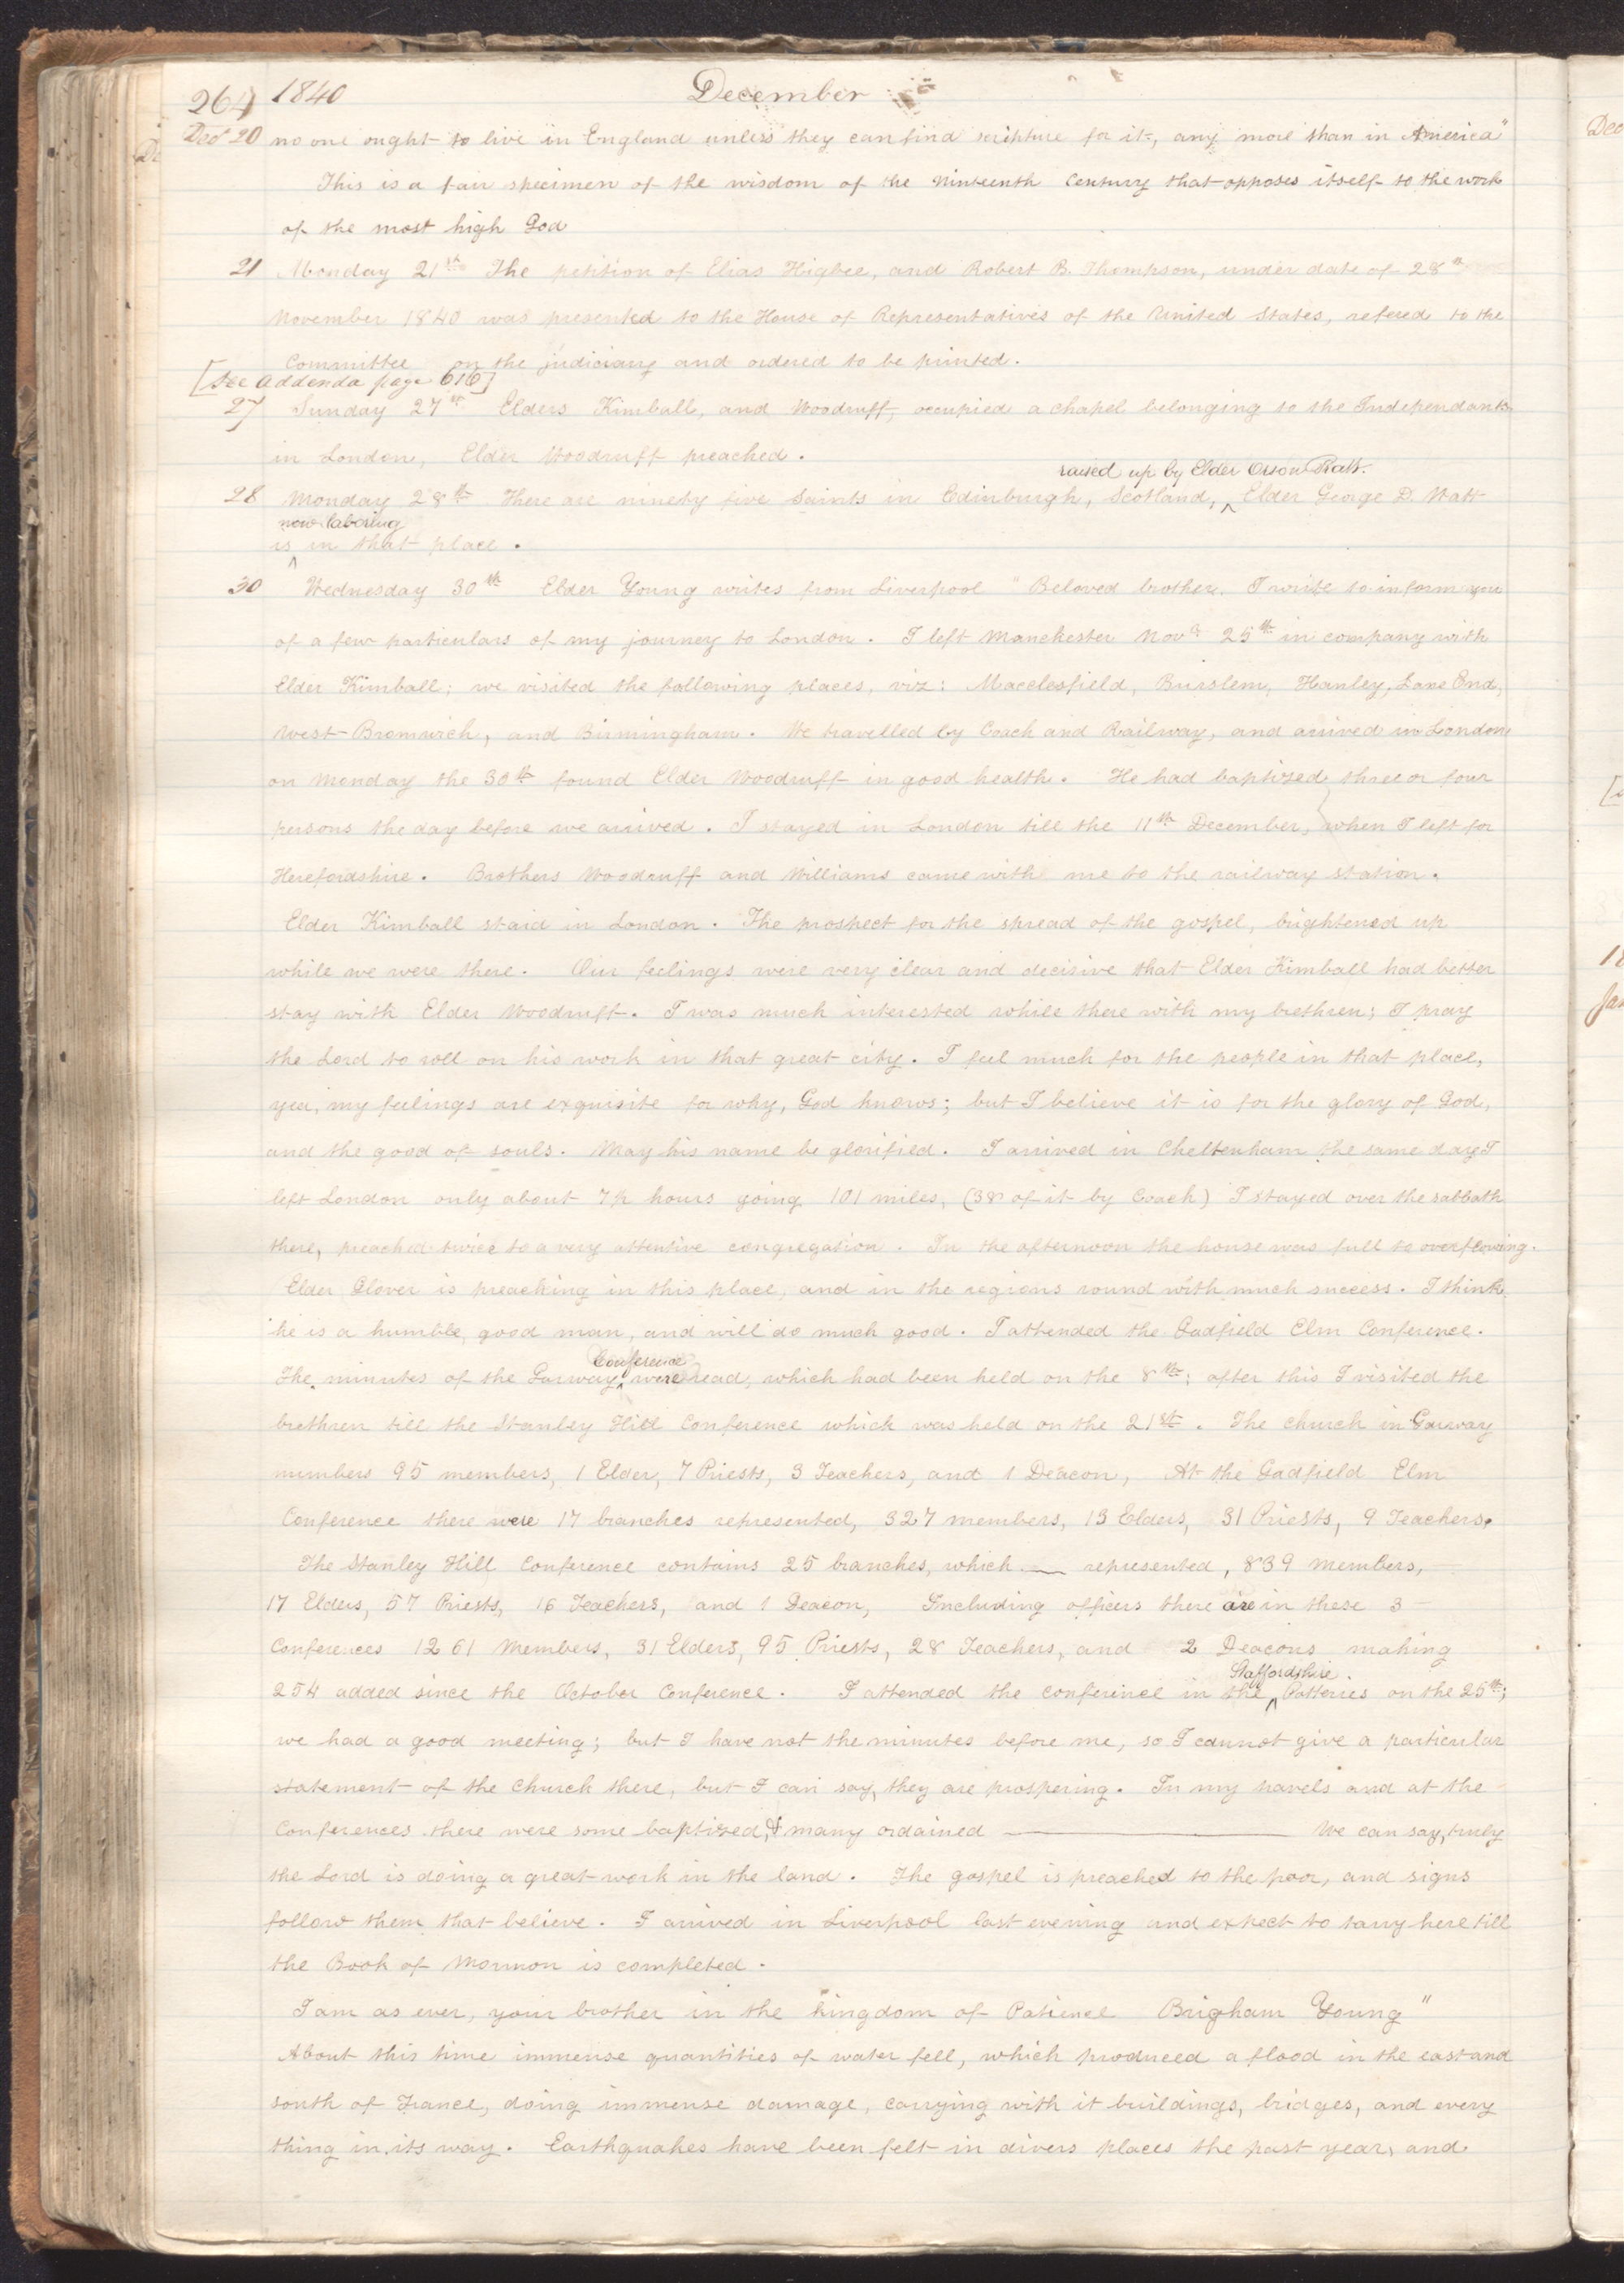 264 1840 December
Decr 20 no one ought to live in England unless they can find scripture for it, any more than in America"
This is a fair specimen of the wisdom of the ninteenth Century that opposes itself to the work
of the most high God
21 Monday 21st The petition of Elias Higbee, and Robert B. Thompson, under date of 28th
November 1840 was presented to the House of Representatives of the United States, refered to the
Committee on the judiciary and ordered to be printed.
[See addenda page 616]
27 Sunday 27th Elders Kimball, and Woodruff, occupied a chapel belonging to the Independants
in London, Elder Woodruff preached.
raised up by Elder Orson Pratt.
28 Monday 28th There are ninety five Saints in Edinburgh, Scotland, ^ Elder George D. Watt
now laboring
is ^ in that place.
30 Wednesday 30th Elder Young writes from Liverpool "Beloved brother. I write to inform you
of a few particulars of my journey to London. I left Manchester Novr 25th in company with
Elder Kimball; we visited the following places, viz: Macclesfield, Burslem, Hanley, Lane End,
West-Bromwich, and Birmingham. We travelled by Coach and Railway, and arrived in London
on Monday the 30th found Elder Woodruff in good health. He had baptized three or four
persons the day before we arrived. I stayed in London till the 11th December, when I left for
Herefordshire. Brothers Woodruff and Williams came with me to the railway station.
Elder Kimball staid in London. The prospect for the spread of the gospel, brightened up
while we were there. Our feelings were very clear and decisive that Elder Kimball had better
stay with Elder Woodruff. I was much interested while there with my brethren; I pray
the Lord to roll on his work in that great city. I feel much for the people in that place,
yea, my feelings are exquisite for why, God knows; but I believe it is for the glory of God,
and the good of souls. May his name be glorified. I arrived in Cheltenham the same day I
left London only about 7½ hours going 101 miles, (38 of it by Coach) I stayed over the sabbath
there, preached twice to a very attentive congregation. In the afternoon the house was full to overflowing.
Elder Glover is preaching in this place, and in the regions round with much success. I think
he is a humble, good man, and will do much good. I attended the Gadfield Elm Conference.
Conference
The minutes of the Garway ^ were read, which had been held on the 8th; after this I visited the
brethren till the Stanley Hill Conference which was held on the 21st. The church in Garway
numbers 95 members, 1 Elder, 7 Priests, 3 Teachers, and 1 Deacon, At the Gadfield Elm
Conference there were 17 branches represented, 327 members, 13 Elders, 31 Priests, 9 Teachers.
The Stanley Hill Conference contains 25 branches, which — represented, 839 Members,
17 Elders, 57 Priests, 16 Teachers, and 1 Deacon, Including officers there are in these 3
Conferences 1261 Members, 31 Elders, 95 Priests, 28 Teachers, and 2 Deacons making
Staffordshire.
254 added since the October Conference. I attended the conference in the ^ Potteries on the 25th;
we had a good meeting; but I have not the minutes before me, so I cannot give a particular
statement of the Church there, but I can say, they are prospering. In my travels and at the
Conferences there were some baptized, & many ordained ——— We can say, truly
the Lord is doing a great work in the land. The gospel is preached to the poor, and signs
follow them that believe. I arrived in Liverpool last evening and expect to tarry here till
the Book of Mormon is completed.
I am as ever, your brother in the kingdom of Patience Brigham Young"
About this time immense quantities of water fell, which produced a flood in the east and
south of France, doing immense damage, carrying with it buildings, bridges, and every
thing in its way. Earthquakes have been felt in divers places the past year, and